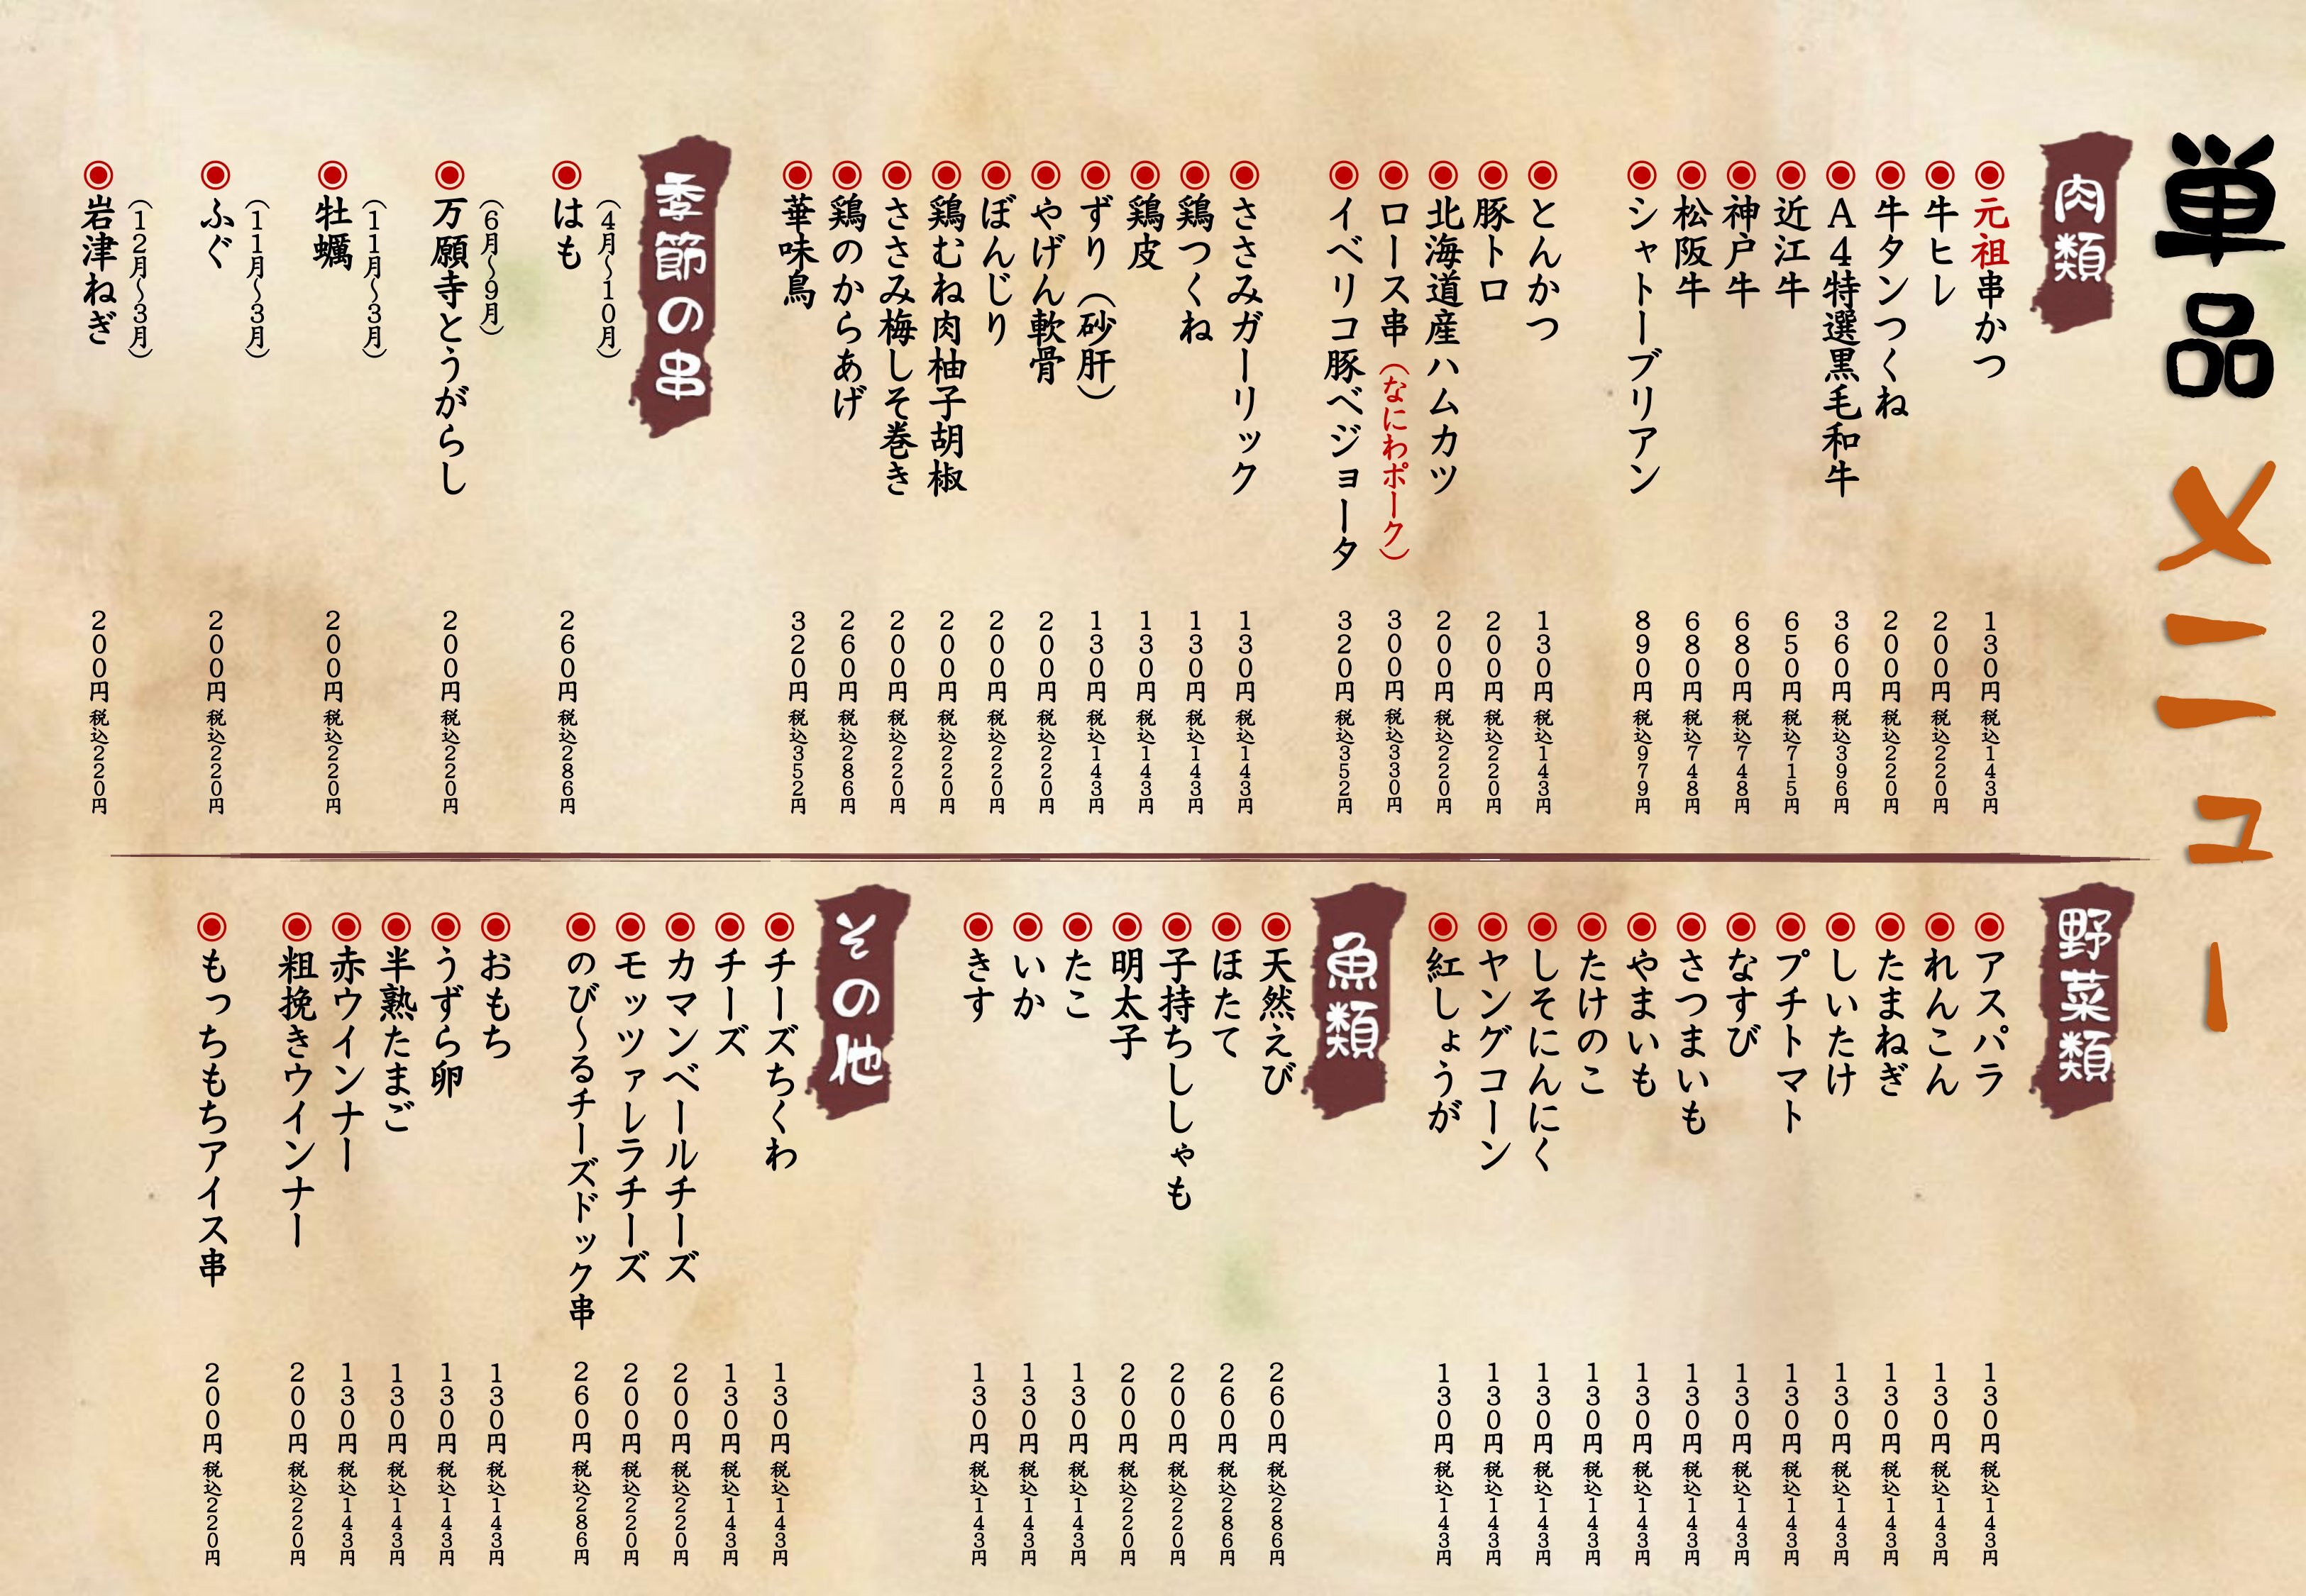 単品メニュー
肉類
元祖串かつ 130円 税込143円
牛ヒレ 200円 税込220円
牛タンつくね 200円 税込220円
A4特選黒毛和牛 360円 税込396円
近江牛 650円 税込715円
神戸牛 680円 税込748円
松阪牛 680円 税込748円
シャトーブリアン 890円 税込979円
とんかつ 130円 税込143円
豚トロ 200円 税込220円
北海道産ハムカツ 200円 税込220円
ロース串（なにわポーク） 300円 税込330円
イベリコ豚ベジョータ 320円 税込352円
ささみガーリック 130円 税込143円
鶏つくね 130円 税込143円
鶏皮 130円 税込143円
ずり（砂肝） 130円 税込143円
やげん軟骨 200円 税込220円
ぼんじり 200円 税込220円
鶏むね肉柚子胡椒 200円 税込220円
ささみ梅しそ巻き 200円 税込220円
鶏のからあげ 260円 税込286円
華味鳥 320円 税込352円
季節の串
（4月〜10月）
はも 260円 税込286円
（6月〜9月）
万願寺とうがらし 200円 税込220円
（11月〜3月）
牡蠣 200円 税込220円
（11月〜3月）
ふぐ 200円 税込220円
（12月〜3月）
岩津ねぎ 200円 税込220円
野菜類
アスパラ 130円 税込143円
れんこん 130円 税込143円
たまねぎ 130円 税込143円
しいたけ 130円 税込143円
プチトマト 130円 税込143円
なすび 130円 税込143円
さつまいも 130円 税込143円
やまいも 130円 税込143円
たけのこ 130円 税込143円
しそにんにく 130円 税込143円
ヤングコーン 130円 税込143円
紅しょうが 130円 税込143円
魚類
天然えび 260円 税込286円
ほたて 260円 税込286円
子持ちししゃも 200円 税込220円
明太子 200円 税込220円
たこ 130円 税込143円
いか 130円 税込143円
きす 130円 税込143円
その他
チーズちくわ 130円 税込143円
チーズ 130円 税込143円
カマンベールチーズ 200円 税込220円
モッツァレラチーズ 200円 税込220円
のび〜るチーズドック串 260円 税込286円
おもち 130円 税込143円
うずら卵 130円 税込143円
半熟たまご 130円 税込143円
赤ウインナー 130円 税込143円
粗挽きウインナー 200円 税込220円
もっちもちアイス串 200円 税込220円